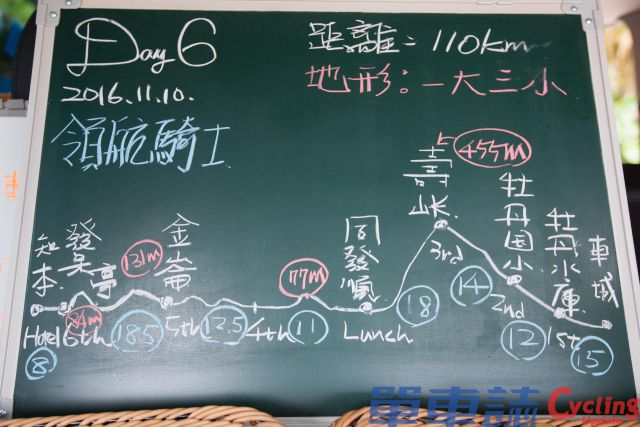 Day 6
距離: 110km
2016.11.10.
地形: 一大三小
領航騎士
壽峠
455m
知本
發呆亭
131m
金崙
77m
同發順
牡丹国小
牡丹水庫
車城
Hotel
84m
6th
5th
4th
Lunch
3rd
2nd
1st
8
18.5
12.5
11
18
14
12
15
單車誌 Cycling